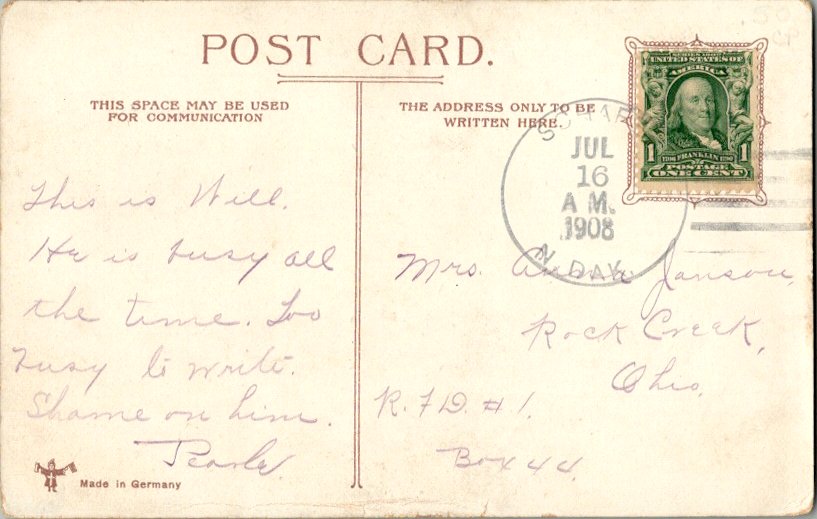 POST CARD.
THIS SPACE MAY BE USED
FOR COMMUNICATION
THE ADDRESS ONLY TO BE
WRITTEN HERE.
SERIES 1902
UNITED STATES OF
AMERICA
1706 FRANKLIN 1790
1 1
POSTAGE
ONE CENT
JUL
16
A M.
1908
N. DAK.
This is Will.
He is busy all
the time. Too
busy to write.
Shame on him.
Mrs. Anna Janson,
Rock Creek,
Ohio,
R. F D. # 1.
Box 44.
Made in Germany